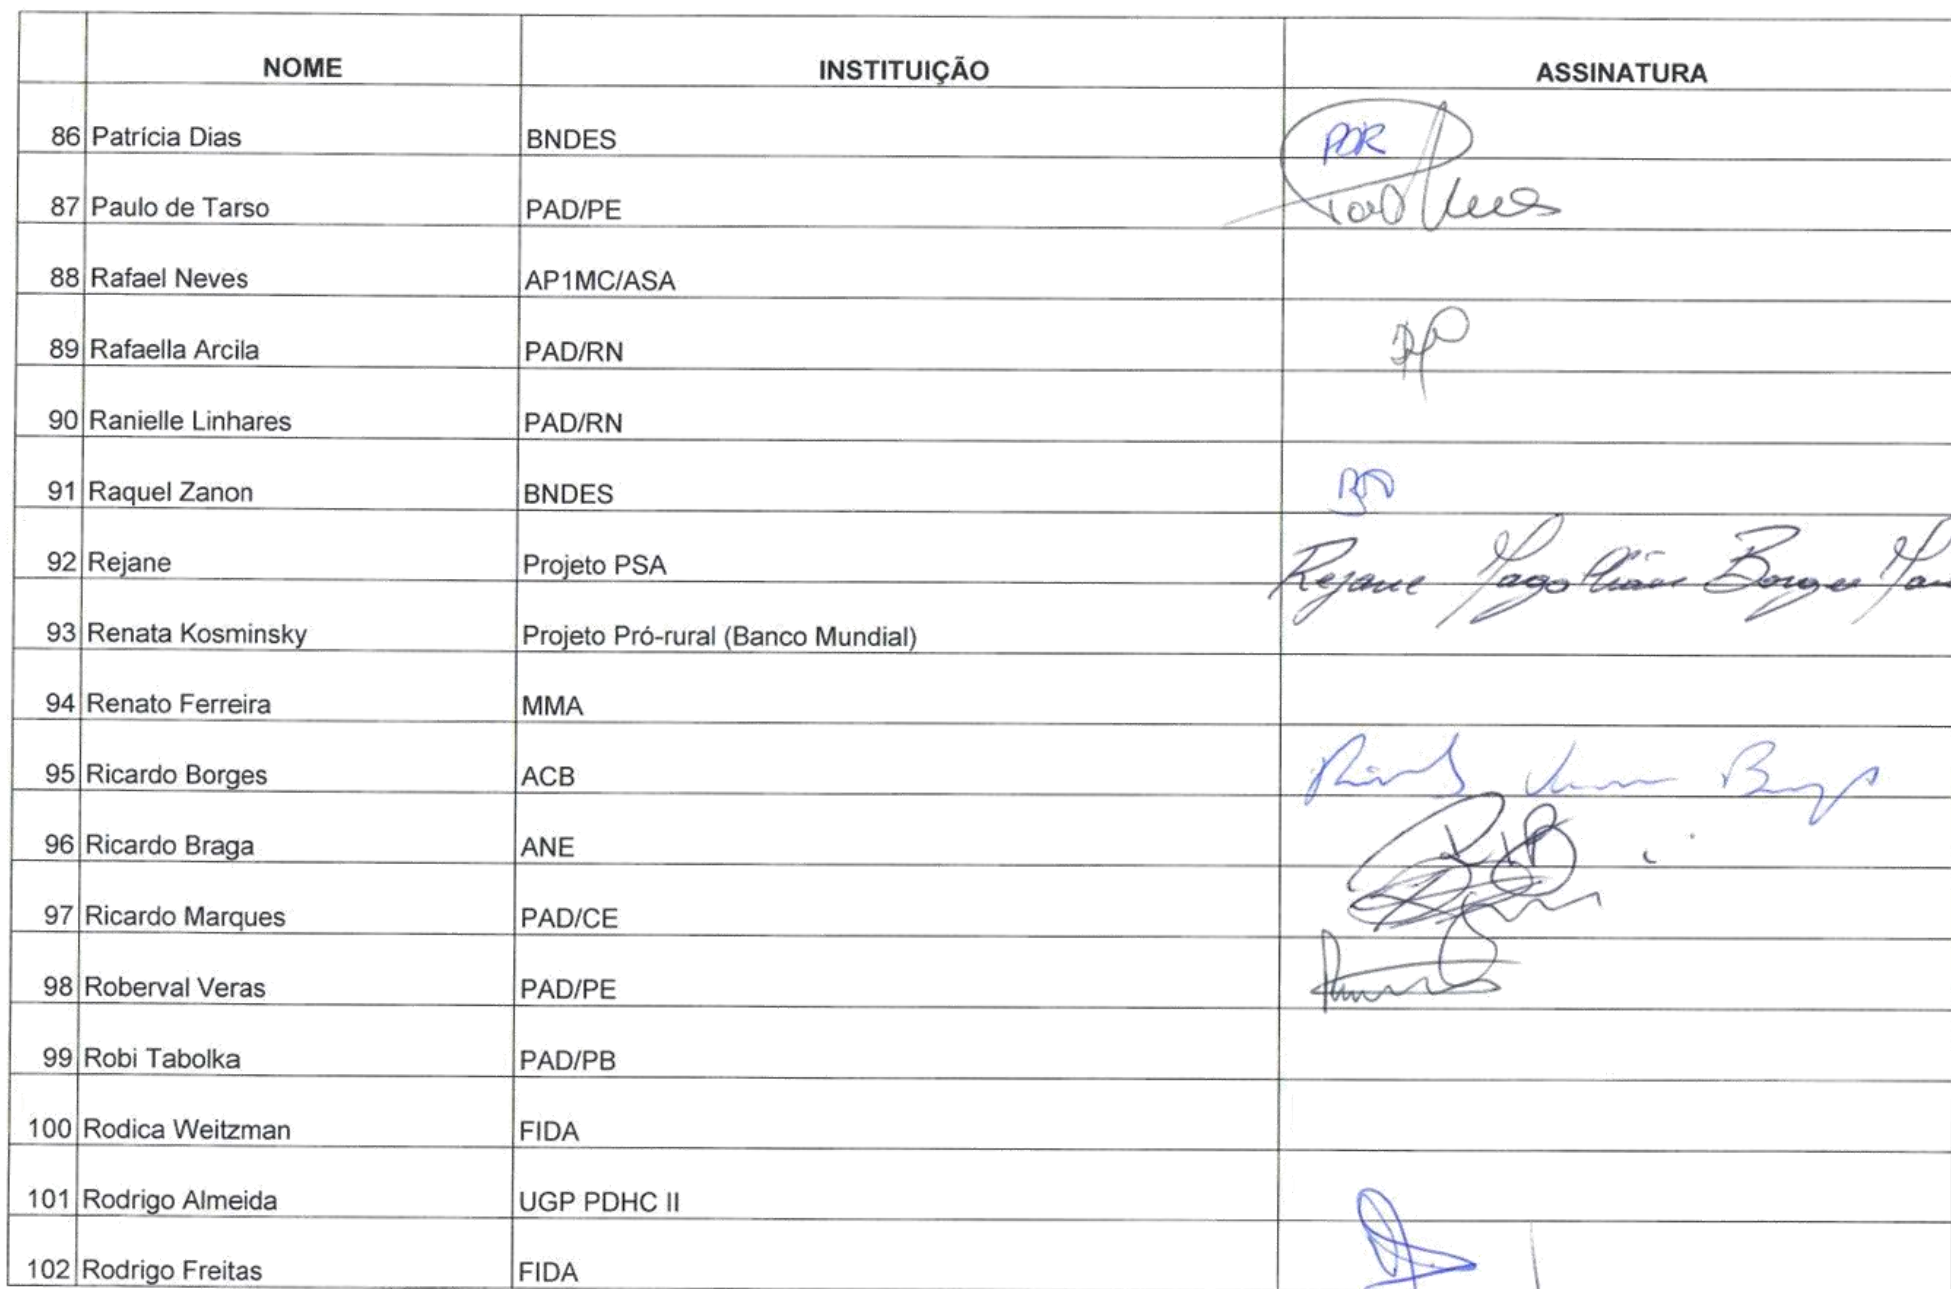 NOME INSTITUIÇÃO ASSINATURA
86 Patrícia Dias BNDES PDR
87 Paulo de Tarso PAD/PE
88 Rafael Neves AP1MC/ASA
89 Rafaella Arcila PAD/RN
90 Ranielle Linhares PAD/RN
91 Raquel Zanon BNDES
92 Rejane Projeto PSA Rejane Magalhães Borges
93 Renata Kosminsky Projeto Pró-rural (Banco Mundial)
94 Renato Ferreira MMA
95 Ricardo Borges ACB
96 Ricardo Braga ANE
97 Ricardo Marques PAD/CE
98 Roberval Veras PAD/PE
99 Robi Tabolka PAD/PB
100 Rodica Weitzman FIDA
101 Rodrigo Almeida UGP PDHC II
102 Rodrigo Freitas FIDA